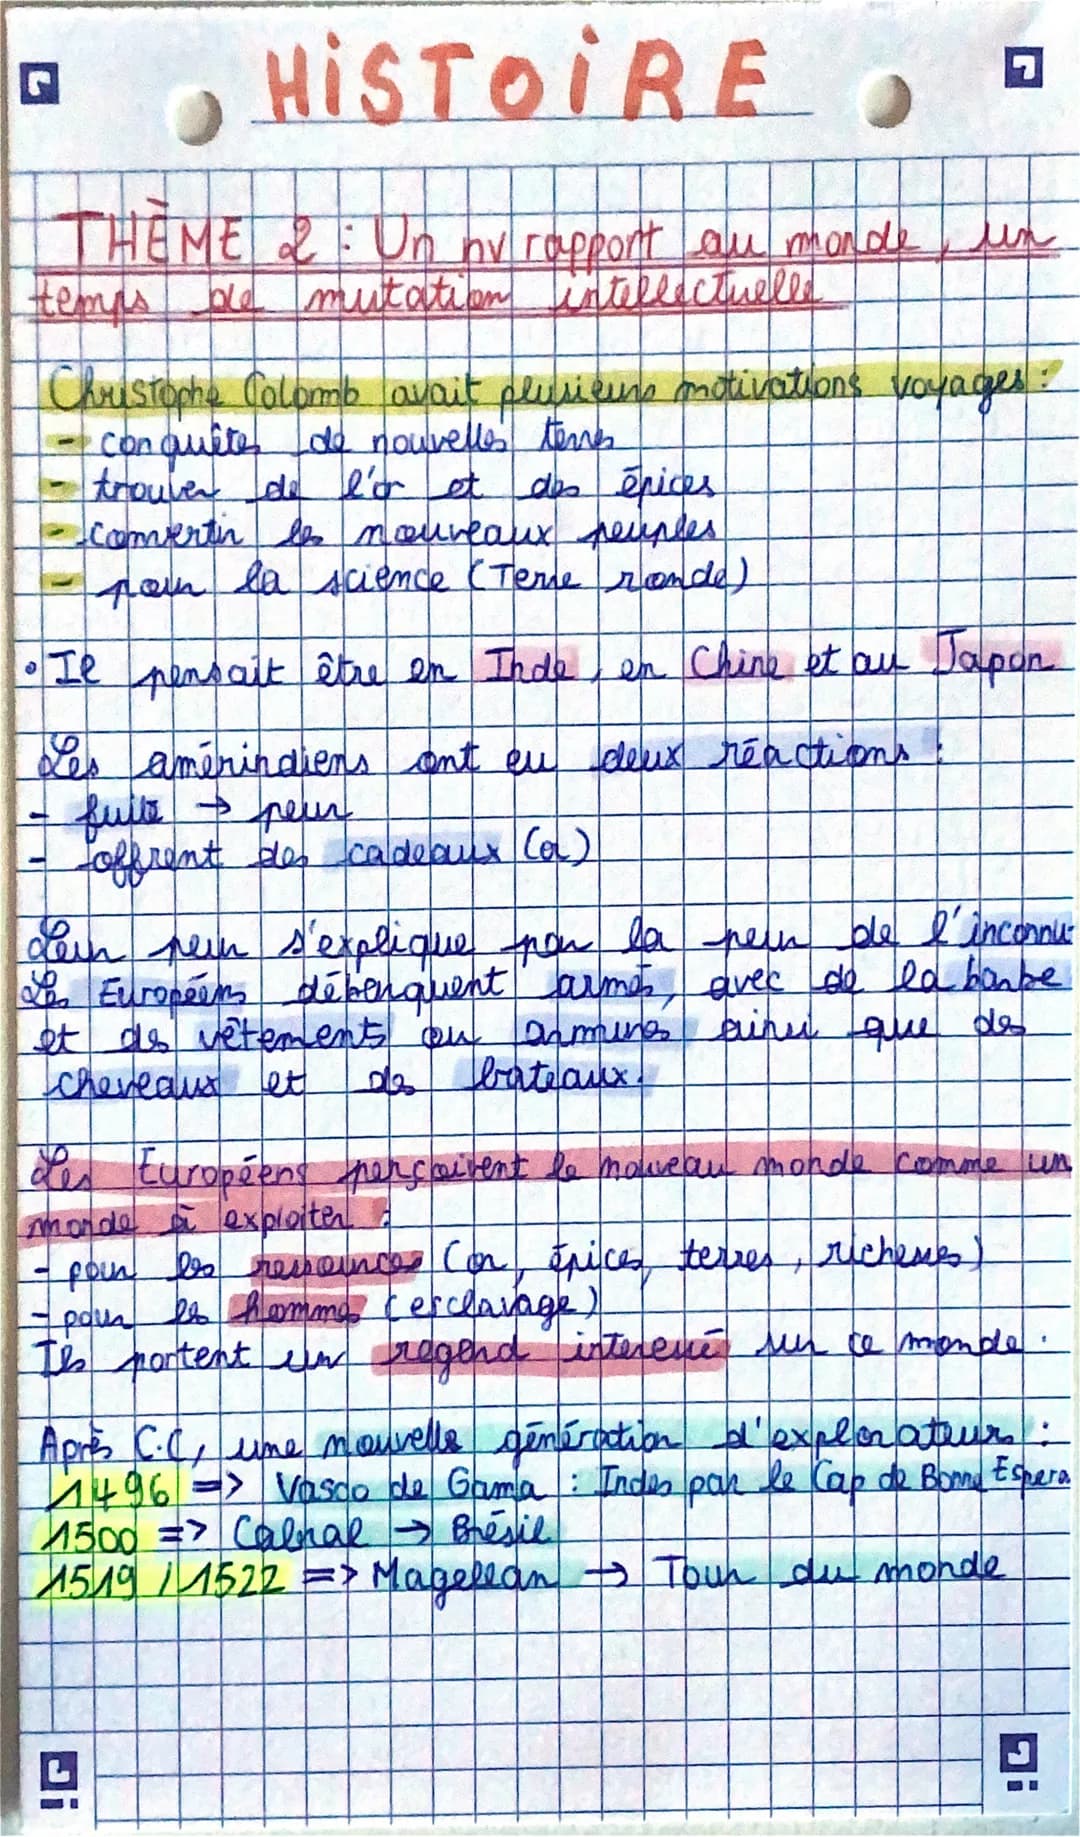 HiSTOiRE
THÈME 2 : Un nv rapport au monde, un
temps de mutation intellectuelle
Christophe Colomb avait plusieurs motivations voyages :
- conquêtes de nouvelles terres
- trouver de l'or et des épices
- convertir les nouveaux peuples
- pour la science (Terre ronde)
• Il pensait être en Inde, en Chine et au Japon
Les amérindiens ont eu deux réactions :
- fuite → peur
- offrent des cadeaux (or)
Leur peur s'explique par la peur de l'inconnu.
Les Européens débarquent armés, avec de la barbe
et des vêtements ou armures ainsi que des
cheveaux et des bateaux.
Les Européens perçoivent le nouveau monde comme un
monde à exploiter :
- pour les ressources (or, épices, terres, richesses)
- pour les hommes (esclavage)
Ils portent un regard interessé sur ce monde.
Après C.C, une nouvelle génération d'explorateurs :
1496 => Vasco de Gama : Indes par le Cap de Bonne Espera
1500 => Cabral → Brésil
1519 / 1522 => Magellan → Tour du monde